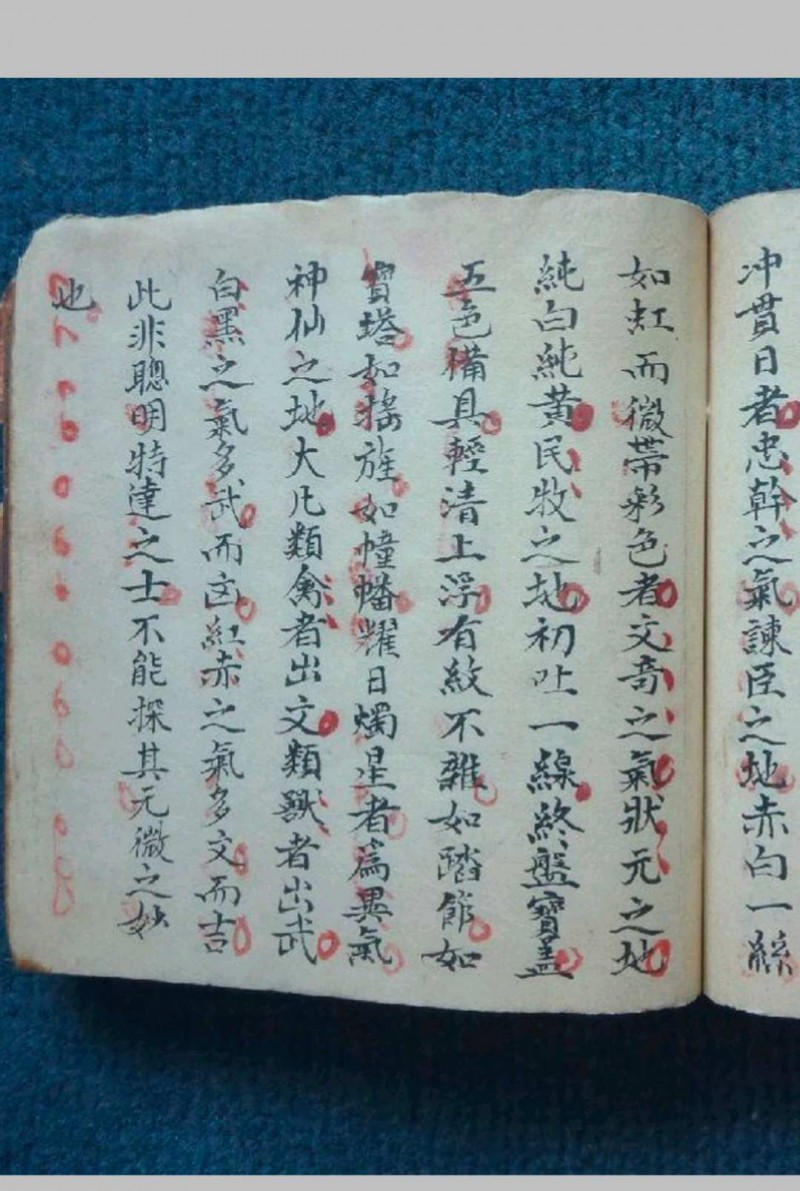 冲貫日者忠幹之氣諫臣之地赤白一縧
如虹而微帶彩色者文奇之氣狀元之地
純白純黃民牧之地初吐一線終盤寶盖
五色備具輕清上浮有紋不雜如踏節如
寳塔如搖旌如幢幡耀日燭星者為異氣
神仙之地大凡類禽者出文類獸者出武
白黑之氣多武而凶紅赤之氣多文而吉
此非聰明特達之士不能探其元微之妙
也